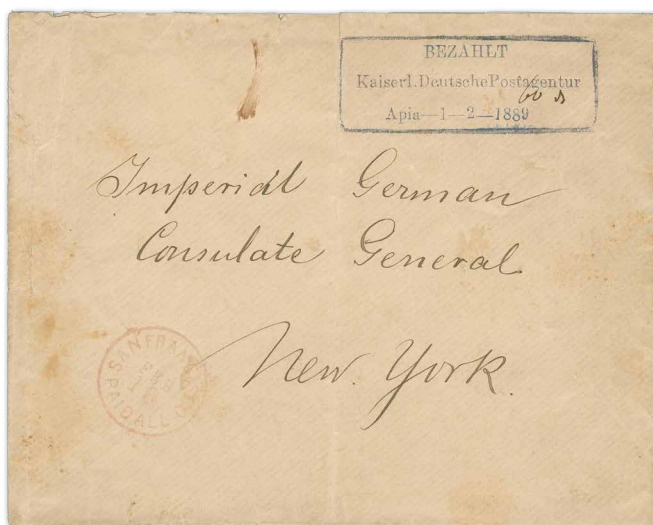 BEZAHLT
Kaiserl. Deutsche Postagentur
60
Apia—1—2—1889
Imperial German
Consulate General
New York.
SAN FRAN
FEB
PAID ALL